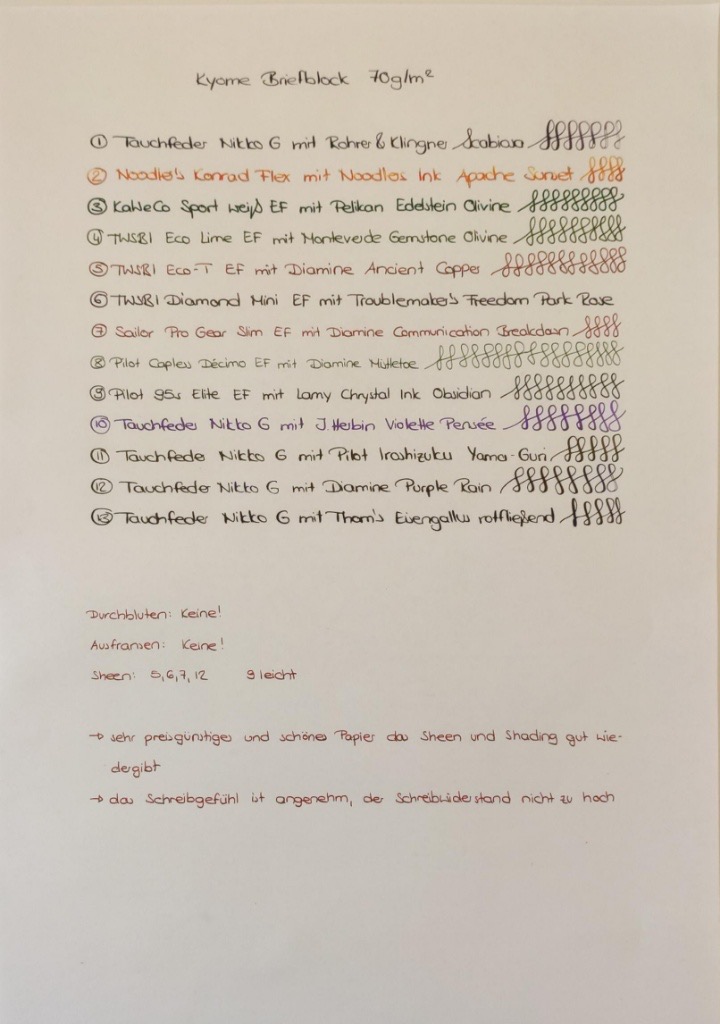 Kyome Briefblock 70g/m²
① Tauchfeder Nikko G mit Rohrer & Klingner Scabiosa
② Noodler's Konrad Flex mit Noodlers Ink Apache Sunset
③ KaWeCo Sport weiß EF mit Pelikan Edelstein Olivine
④ TWSBI Eco Lime EF mit Monteverde Gemstone Olivine
⑤ TWSBI Eco-T EF mit Diamine Ancient Copper
⑥ TWSBI Diamond Mini EF mit Troublemaker's Freedom Park Rose
⑦ Sailor Pro Gear Slim EF mit Diamine Communication Breakdown
⑧ Pilot Capless Décimo EF mit Diamine Mistletoe
⑨ Pilot 95s Elite EF mit Lamy Chrystal Ink Obsidian
⑩ Tauchfeder Nikko G mit J. Herbin Violette Pensée
⑪ Tauchfeder Nikko G mit Pilot Iroshizuku Yama-Guri
⑫ Tauchfeder Nikko G mit Diamine Purple Rain
⑬ Tauchfeder Nikko G mit Thom's Eisengallus rotfließend
Durchbluten: Keine!
Ausfransen: Keine!
Sheen: 5,6,7,12 9 leicht
→ sehr preisgünstiges und schönes Papier das Sheen und Shading gut wie-
dergibt
→ das Schreibgefühl ist angenehm, der Schreibwiderstand nicht zu hoch